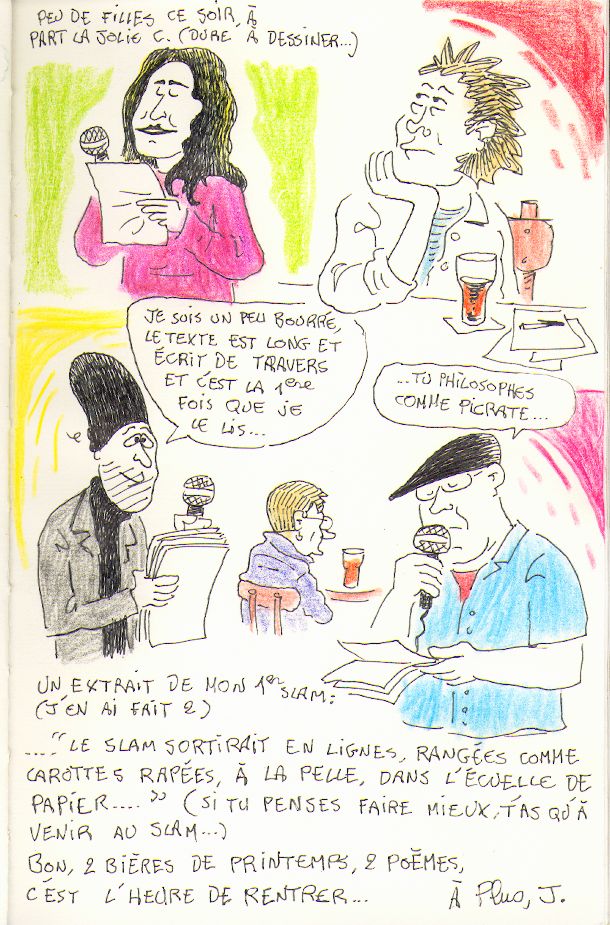 PEU DE FILLES CE SOIR, À
PART LA JOLIE C. (DURE À DESSINER...)
JE SUIS UN PEU BOURRÉ,
LE TEXTE EST LONG ET
ÉCRIT DE TRAVERS
ET C'EST LA 1ère
FOIS QUE JE
LE LIS...
...TU PHILOSOPHES
COMME PICRATE...
UN EXTRAIT DE MON 1er SLAM:
(J'EN AI FAIT 2)
...."LE SLAM SORTIRAIT EN LIGNES, RANGÉES COMME
CAROTTES RAPÉES, À LA PELLE, DANS L'ÉCUELLE DE
PAPIER...." (SI TU PENSES FAIRE MIEUX, T'AS QU'À
VENIR AU SLAM...)
BON, 2 BIÈRES DE PRINTEMPS, 2 POÈMES,
C'EST L'HEURE DE RENTRER... À Plus, J.